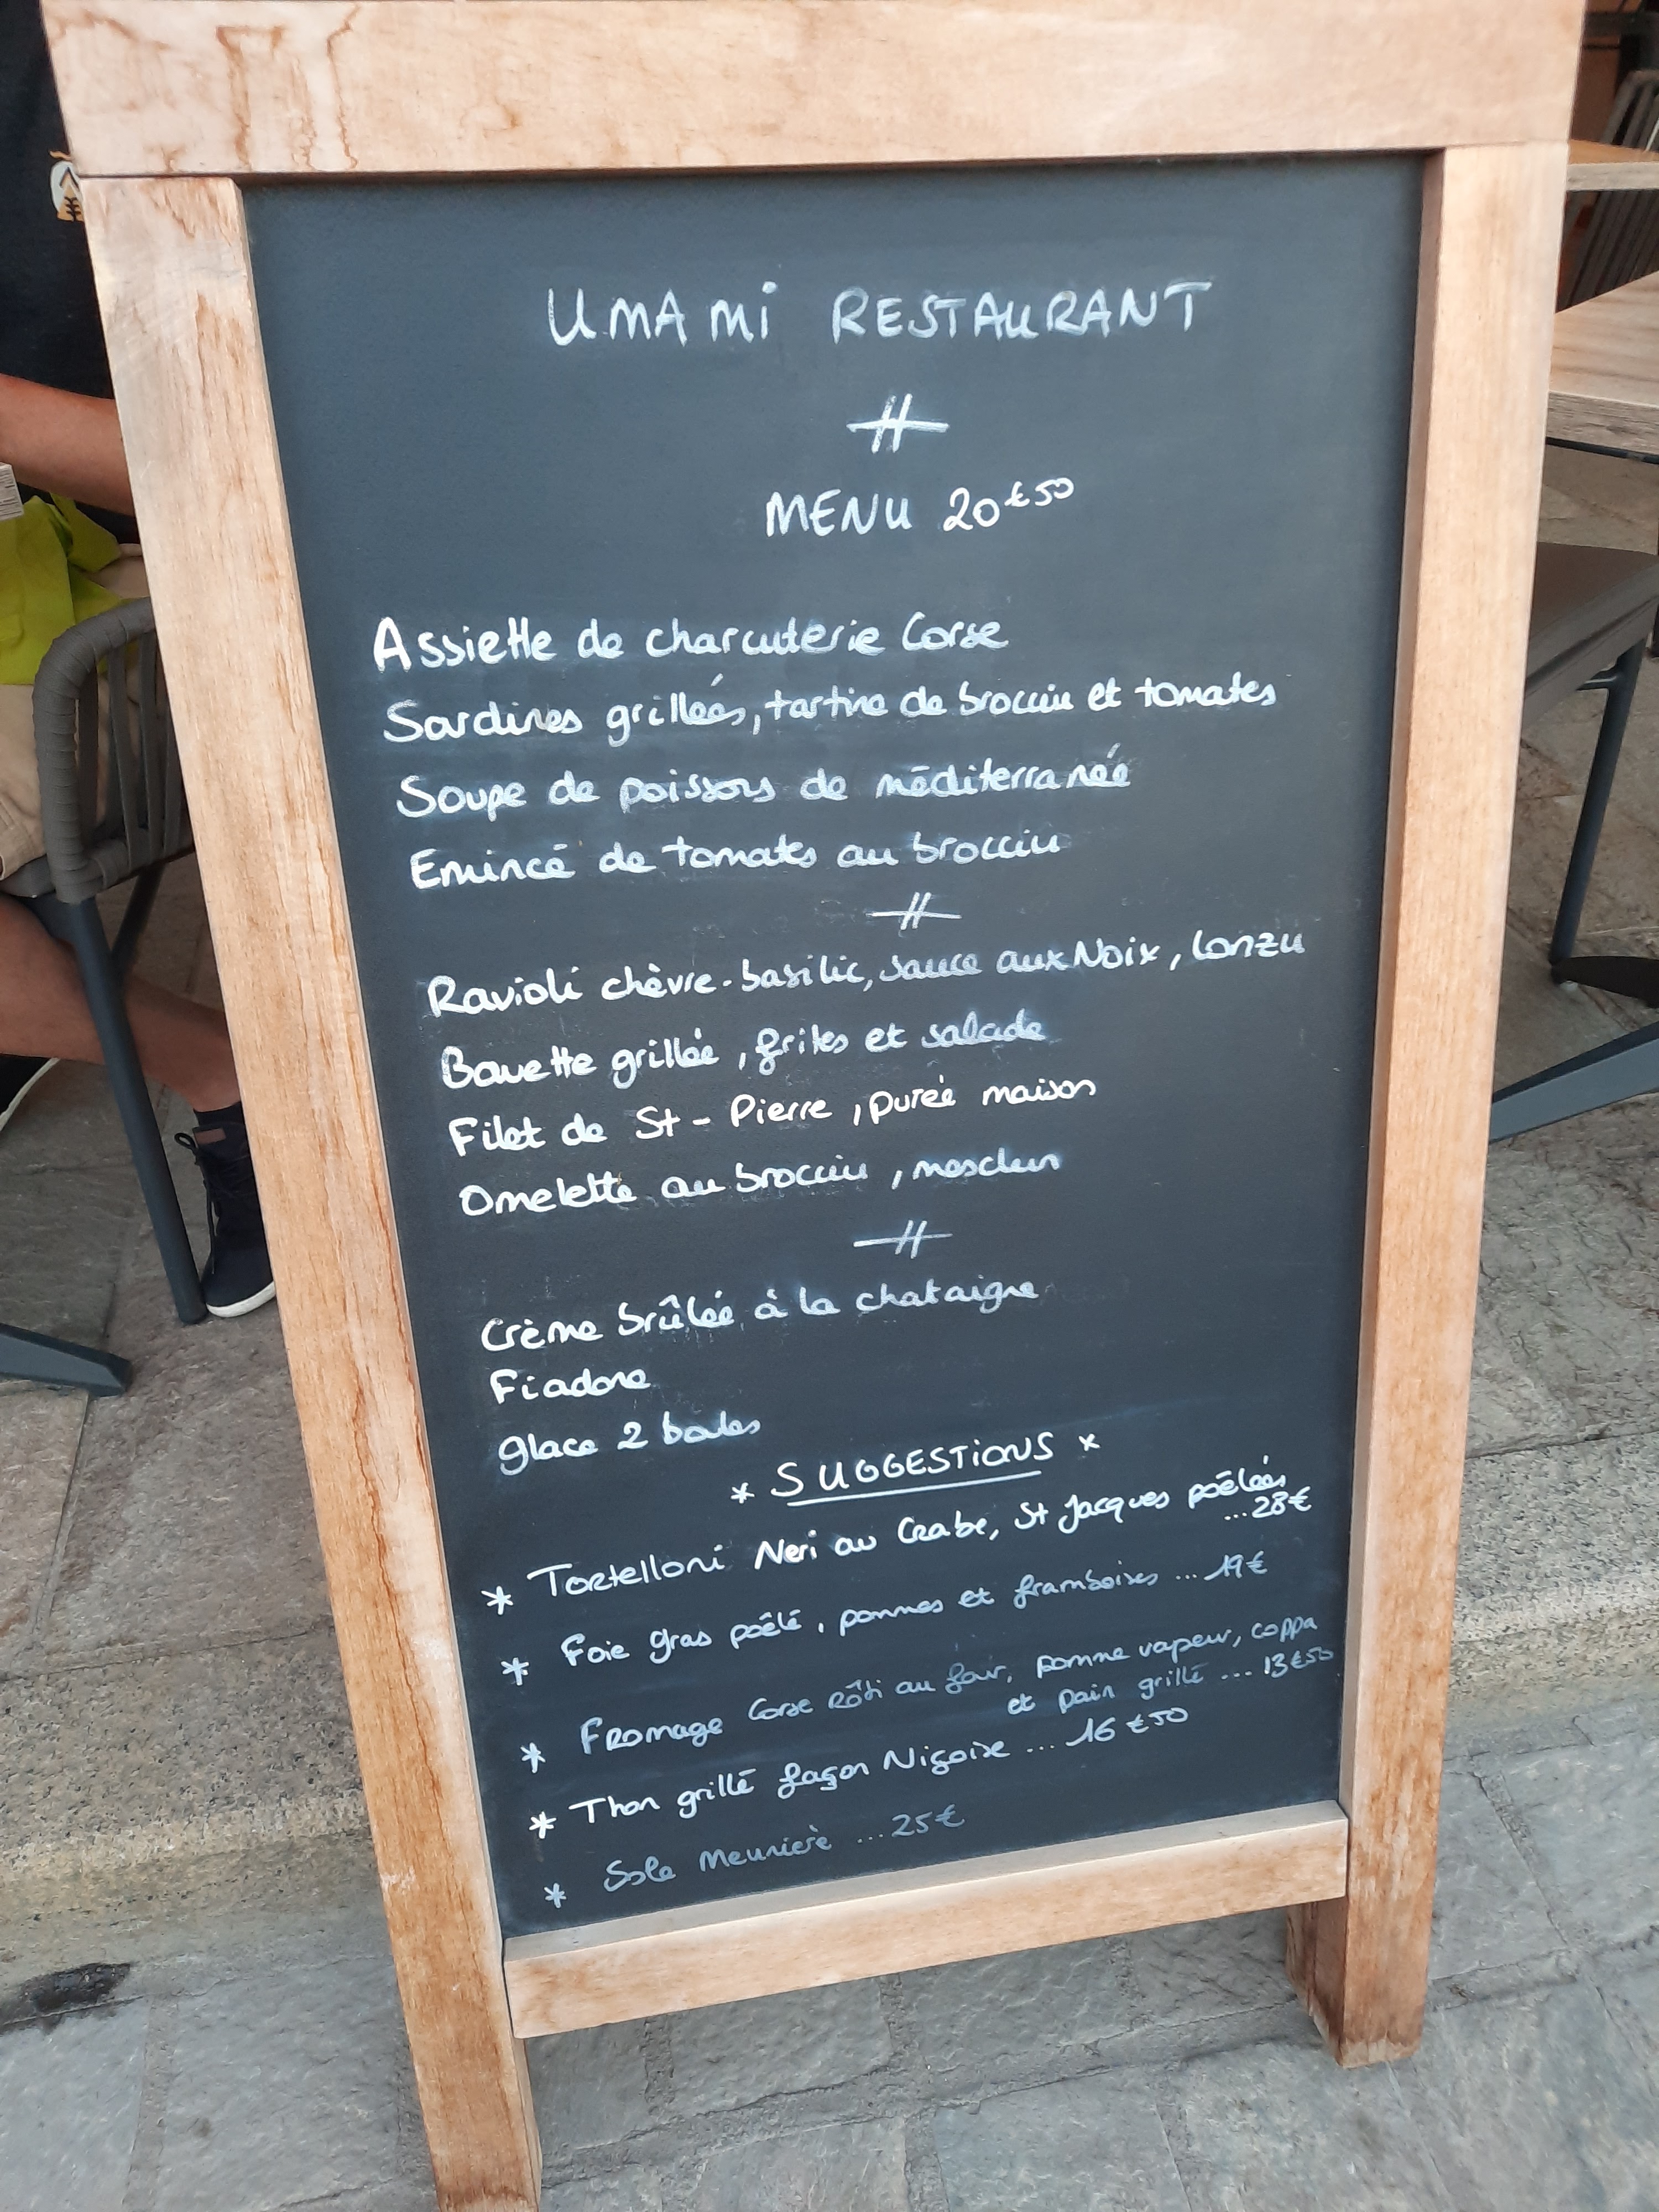 UMAMI RESTAURANT
MENU 20€50
Assiette de charcuterie Corse
Sardines grillées, tartine de brocciu et tomates
Soupe de poissons de méditerranée
Emincé de tomates au brocciu
Ravioli chèvre-basilic, sauce aux Noix, Lonzu
Bavette grillée, frites et salade
Filet de St-Pierre, purée maison
Omelette au brocciu, mesclun
Crème brûlée à la chataigne
Fiadone
Glace 2 boules
* SUGGESTIONS *
* Tortelloni Neri au Crabe, St Jacques poêlées
...28€
* Foie gras poêlé, pommes et framboises ... 19€
* Fromage Corse rôti au four, pomme vapeur, coppa
et pain grillé ... 13€50
* Thon grillé façon Niçoise ... 16€50
* Sole Meunière ... 25€